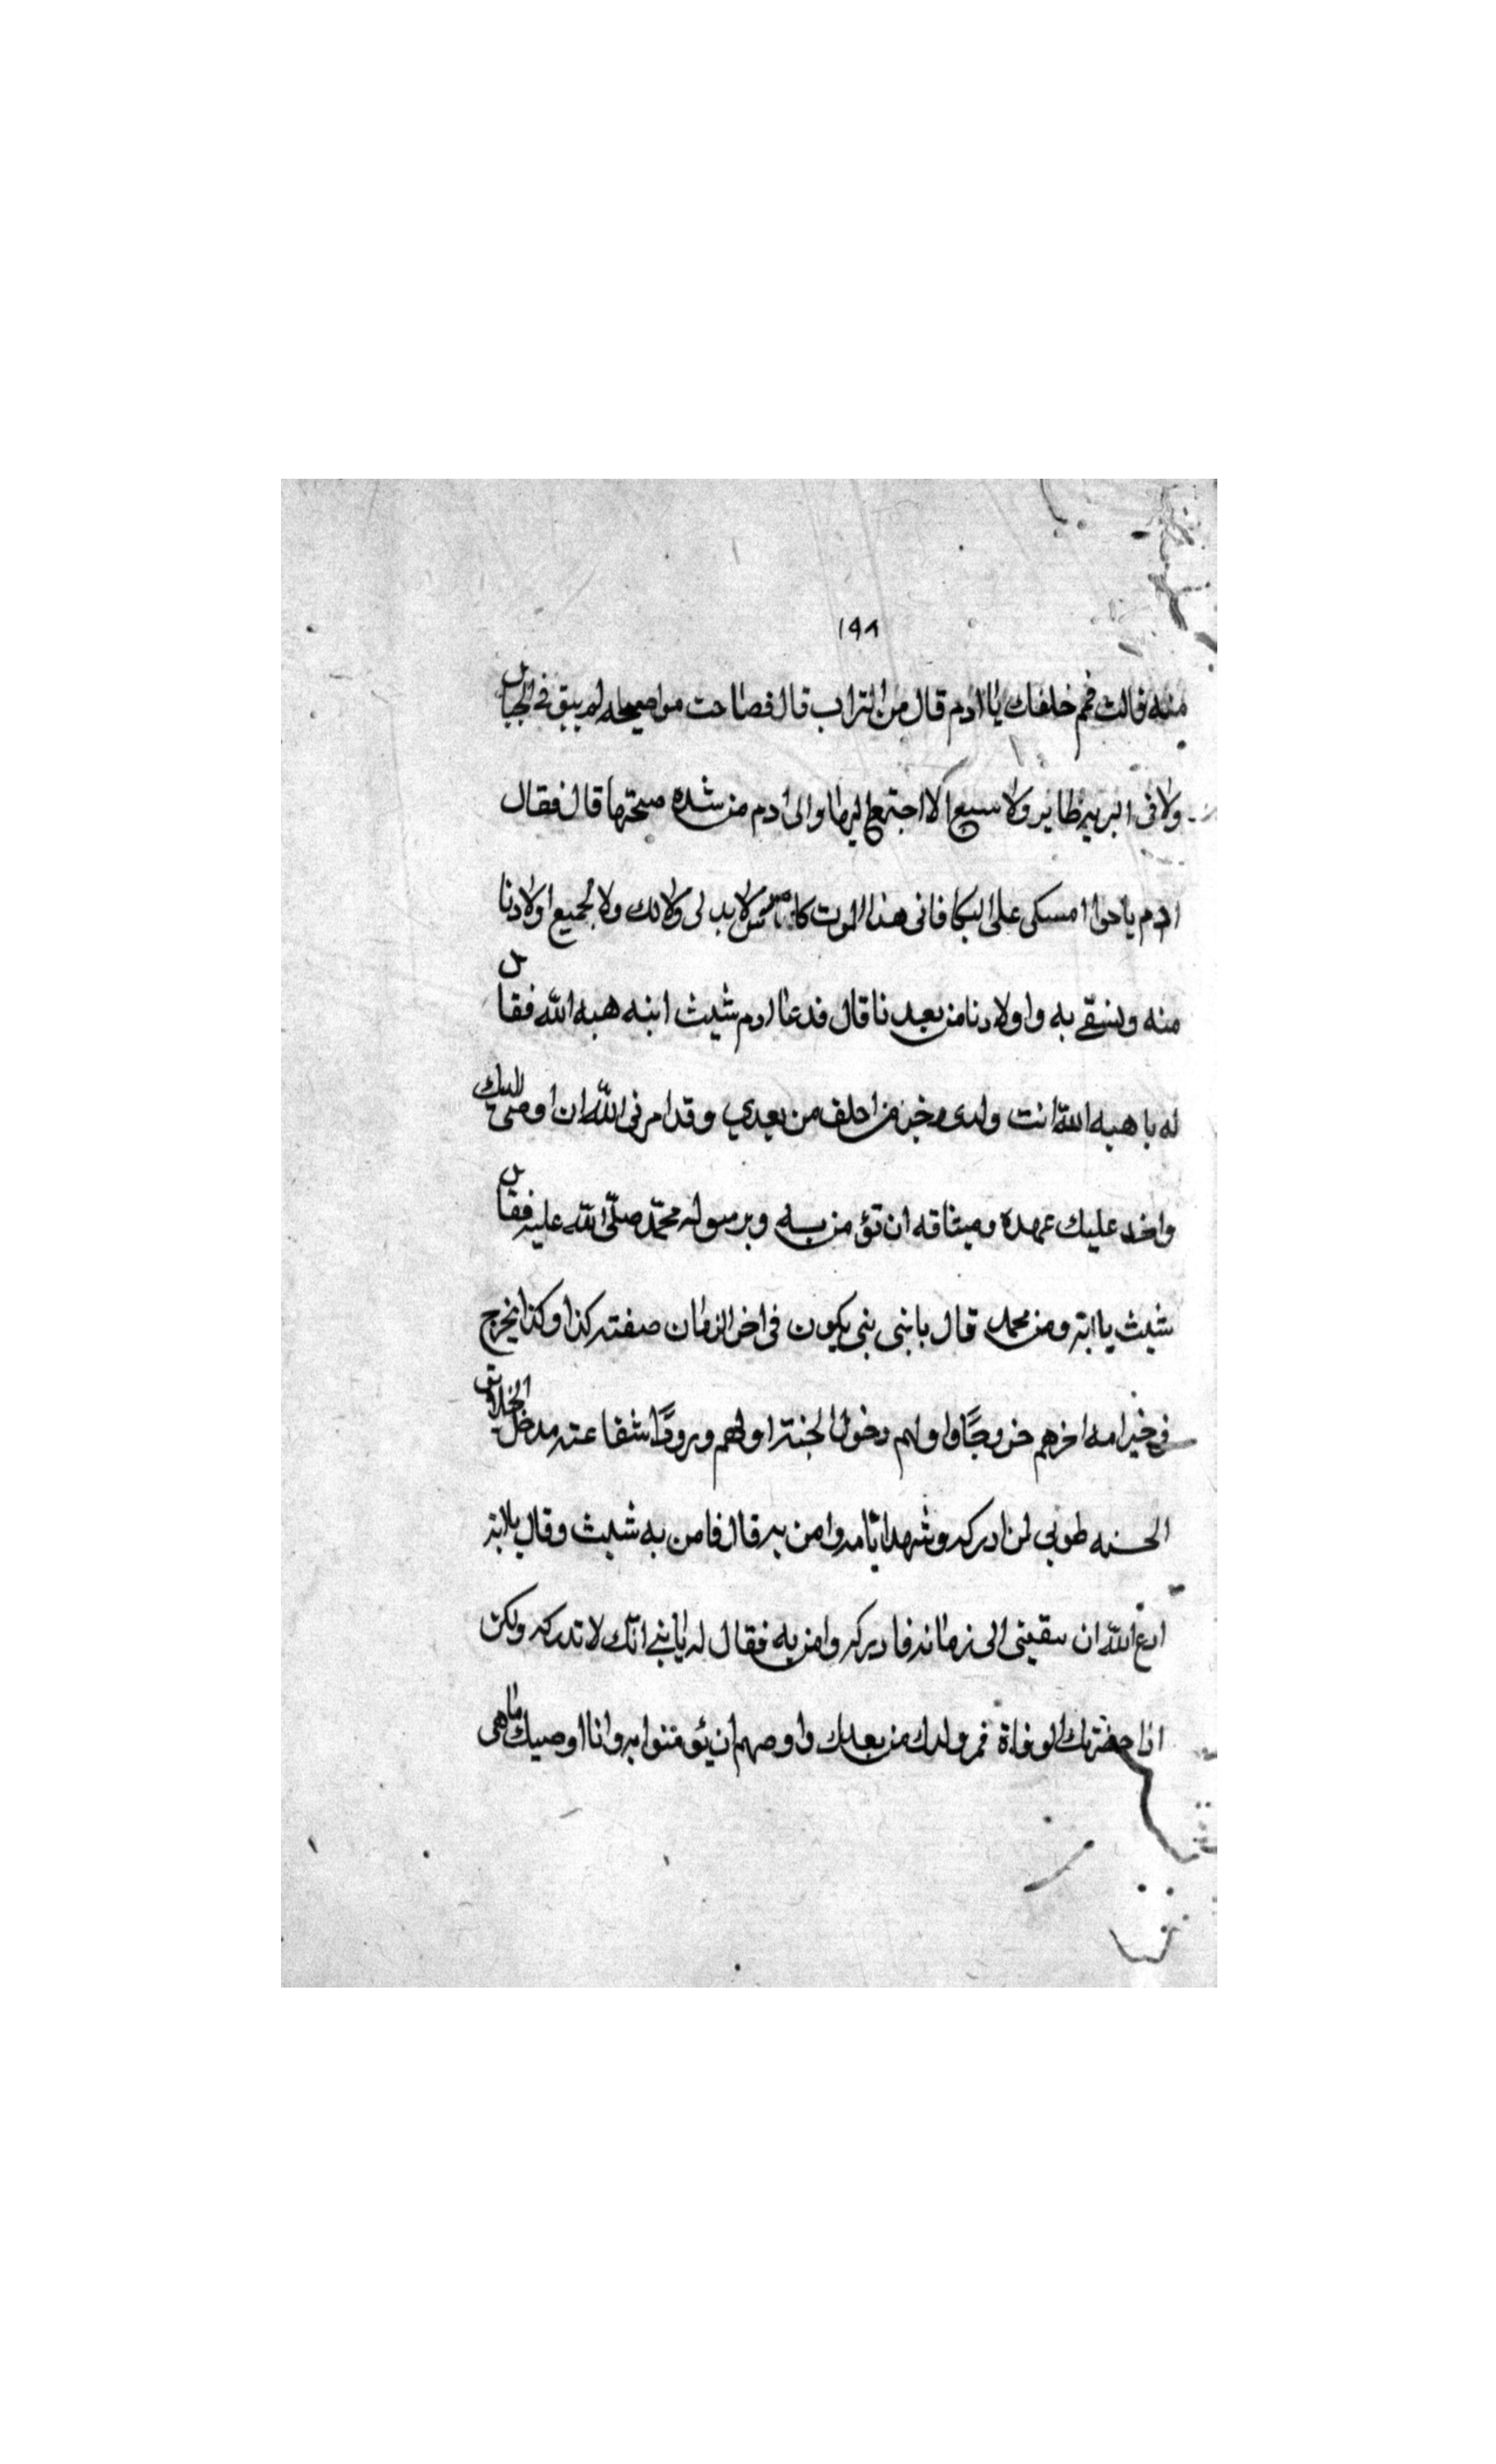 ١٩٨
منه قالت فمم خلقك ياادم قال من التراب قال فصاحت حوا صيحه لم يبق في الجبال
ولا فى البريه طاير ولا سبع الا اجتمع اليها والى ادم من شده صيحتها قال فقال
ادم ياحوا امسكى على البكا فانى هذا الموت كاس لابد لى ولا لك ولا لجميع اولادنا
منه ويسقى به واولادنا من بعدنا قال فدعا ادم شيث ابنه هبه الله فقال
له يا هبه الله انت ولدى وخير من اخلف من بعدي وقد امرنى الله ان اوصى اليك
واخد عليك عهده وميثاقه ان تؤمن به وبرسوله محمّد صلّى الله عليه فقال
شيث يا ابته ومن محمد قال يابنى نبى يكون فى اخر الزمان صفته كذا وكذا يخرج
فى خير امه اخرهم خروجًا واولهم دخول الجنة اولهم ورودًا شفاعته مدخل الخلايق
الجنه طوبى لمن ادركه وشهد ايامه وامن به قال فامن به شيث وقال يا ابته
ادع الله ان يبقينى الى زمانه فادركه وامن به فقال له يا بني انك لا تدركه ولكن
اذا حضرتك الوفاة فمر ولدك من بعدك واوصهم ان يؤمنوا به وانا اوصيك ما هى